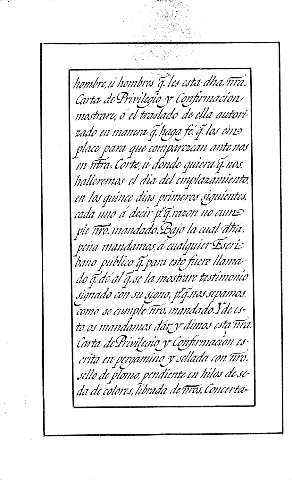 hombre, ú hombres q̃. les esta dha. ñra.
Carta de Privilegio, y Confirmacion
mostrare, o el traslado de ella autori
zado en manera q̃. haga fé, q̃. los em
place para que comparezcan ante nos
en ñtra. Corte, ú donde quiera q̃. nos
hallaremos el dia del emplazamiento,
en los quince dias primeros siguientes
cada uno á decir pr. q̃. razon no cum
ple ñro. mandado. Bajo la cual dha.
pena mandamos á cualquier Escri
bano publico q̃. para esto fuere llama
do q̃. dé al q̃. se la mostrare testimonio
signado con su signo, pa. q̃. nos sepamos
como se cumple ñro. mandado. Y de es
to os mandamos dar, y dimos esta ñra.
Carta de Privilegio, y Confirmacion es
crita en pergamino, y sellada con ñro.
sello de plomo, pendiente en hilos de se
da de colores, librada de ñros. Concerta-